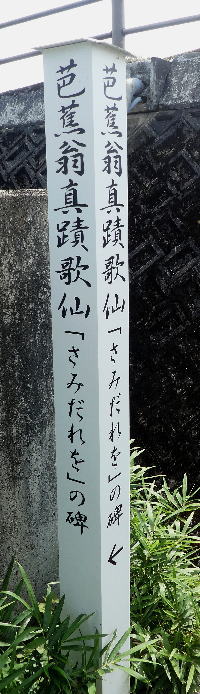 芭蕉翁真蹟歌仙「さみだれを」の碑
芭蕉翁真蹟歌仙「さみだれを」の碑